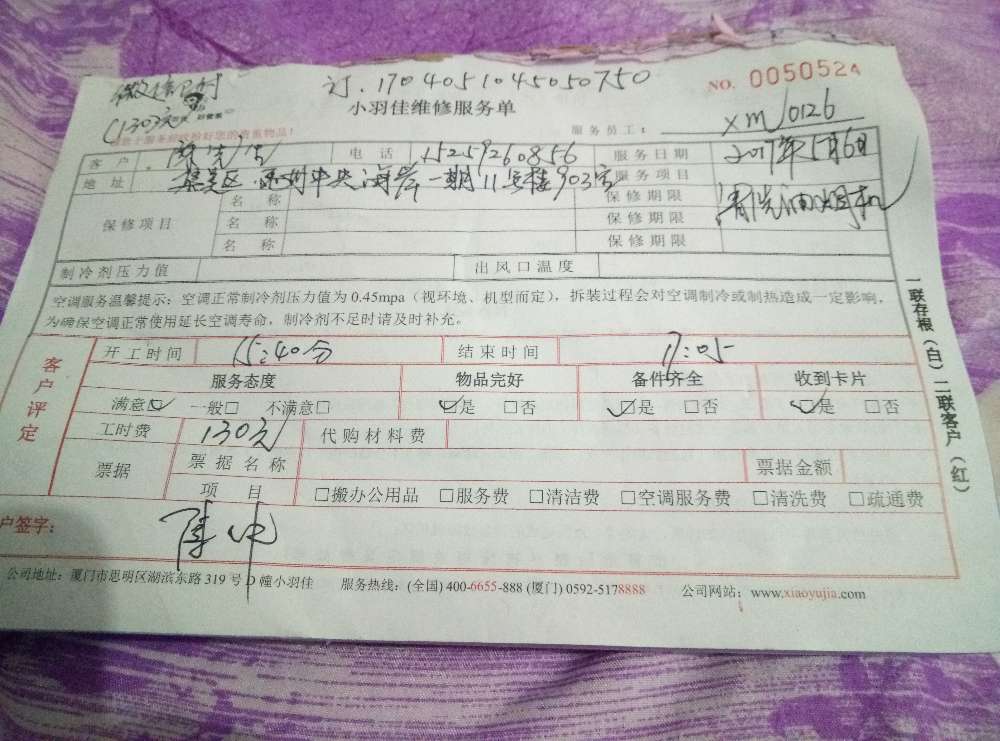 订.1704051045050750
NO. 0050524
(130元
小羽佳维修服务单
服务员工: xm/0126
客户 电话 15259260856 服务日期 2017年5月6日
地址 集美区 中央海岸一期11号楼903室 服务项目 清洗油烟机
保修项目 名称 保修期限
名称 保修期限
名称 保修期限
制冷剂压力值 出风口温度
空调服务温馨提示：空调正常制冷剂压力值为0.45mpa（视环境、机型而定），拆装过程会对空调制冷或制热造成一定影响，
为确保空调正常使用延长空调寿命，制冷剂不足时请及时补充。
一联存根（白）二联客户（红）
客户评定
开工时间 15:40分 结束时间 17:05
服务态度 物品完好 备件齐全 收到卡片
满意☑ 一般□ 不满意□ ☑是 □否 ☑是 □否 ☑是 □否
工时费 130元 代购材料费
票据 票据名称 票据金额
项目 □搬办公用品 □服务费 □清洁费 □空调服务费 □清洗费 □疏通费
户签字:
公司地址：厦门市思明区湖滨东路319号D幢小羽佳 服务热线：(全国) 400-6655-888 (厦门) 0592-5178888 公司网站：www.xiaoyujia.com